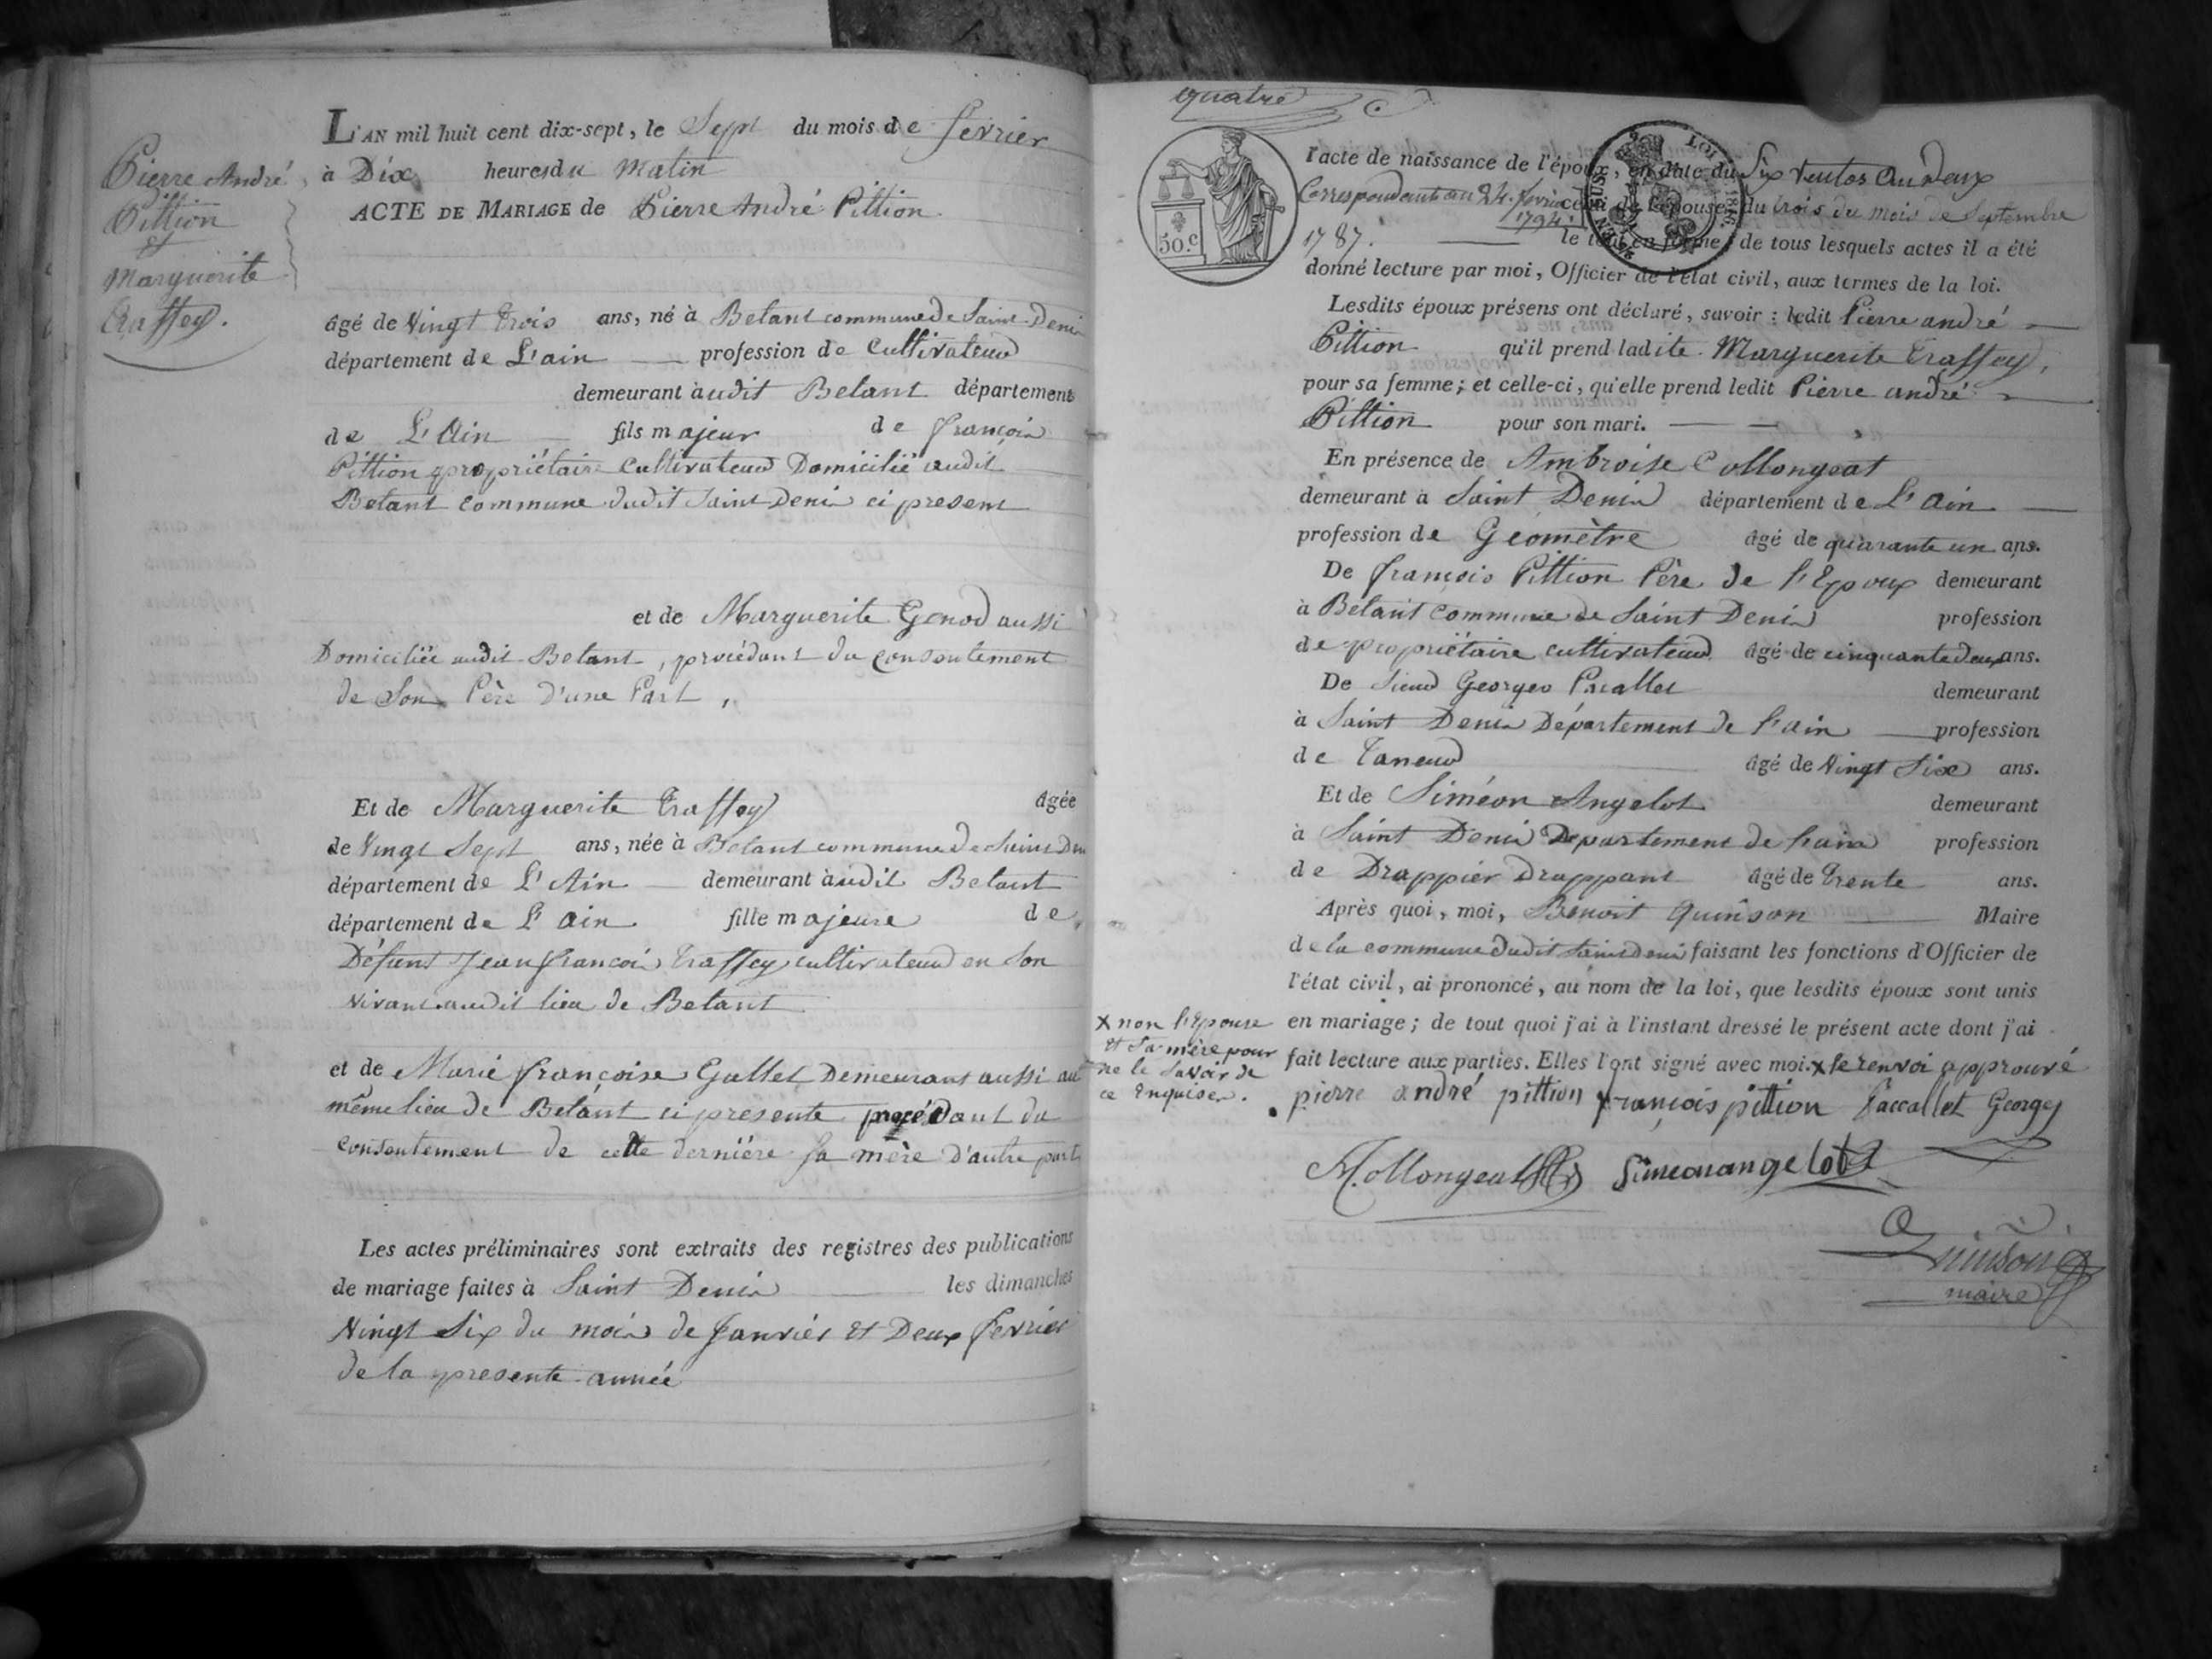 Pierre André
Pittion
et
Marguerite
Traffey.
L'AN mil huit cent dix-sept, le Sept du mois de fevrier
à Dix heures du Matin
ACTE DE MARIAGE de Pierre André Pittion
âgé de Vingt trois ans, né à Betant commune de Saint Denis
département de L'ain profession de Cultivateur
demeurant audit Betant département
de L'Ain fils majeur de françois
Pittion propriétaire Cultivateur Domicilié audit
Betant commune dudit Saint Denis ci present
et de Marguerite Genod aussi
Domiciliée audit Betant, procédant du consentement
de Son Père D'une Part,
Et de Marguerite Traffey âgée
de Vingt Sept ans, née à Betant commune de Saint Den
département de L'Ain demeurant audit Betant
département de L'ain fille majeure de
Défunt Jean françois Traffey cultivateur en Son
Vivant audit lieu de Betant
et de Marie françoise Gullet Demeurant aussi au
même lieu de Betant ci presente procédant du
consentement de cette dernière sa mère d'autre part
Les actes préliminaires sont extraits des registres des publications
de mariage faites à Saint Denis les dimanches
Vingt Six du mois de Janvier et Deux fevrier
de la presente année
quatre
50.c
LOI 1816.
l'acte de naissance de l'époux, en date du Six Ventos an Deux
Correspondant au 24. fevrier celui de l'épouse, du trois du mois de Septembre
1794.
1787. le tout en forme; de tous lesquels actes il a été
donné lecture par moi, Officier de l'état civil, aux termes de la loi.
Lesdits époux présens ont déclaré, savoir : ledit Pierre andré
Pittion qu'il prend ladite Marguerite Traffey,
pour sa femme; et celle-ci, qu'elle prend ledit Pierre andré
Pittion pour son mari.
En présence de Ambroise Collongeat
demeurant à Saint Denis département de L'Ain
profession de Geomètre âgé de quarante un ans.
De françois Pittion Père de l'Epoux demeurant
à Betant commune de Saint Denis profession
de propriétaire cultivateur âgé de cinquante deux ans.
De Sieur Georges Pacallet demeurant
à Saint Denis Département de l'ain profession
de Taneur âgé de Vingt Six ans.
Et de Siméon Angelot demeurant
à Saint Denis Departement de l'ain profession
de Drappier Drappant âgé de trente ans.
Après quoi, moi, Benoit Quinson Maire
de la commune dudit Saint Denis faisant les fonctions d'Officier de
l'état civil, ai prononcé, au nom de la loi, que lesdits époux sont unis
en mariage; de tout quoi j'ai à l'instant dressé le présent acte dont j'ai
fait lecture aux parties. Elles l'ont signé avec moi. x le renvoi approuvé
x non l'Epouse
et Sa mère pour
ne le Savoir de
ce Enquises.
pierre andré pittion françois pittion Paccallet Georges
A. Collongeat Simeonangelot
Quinson
maire